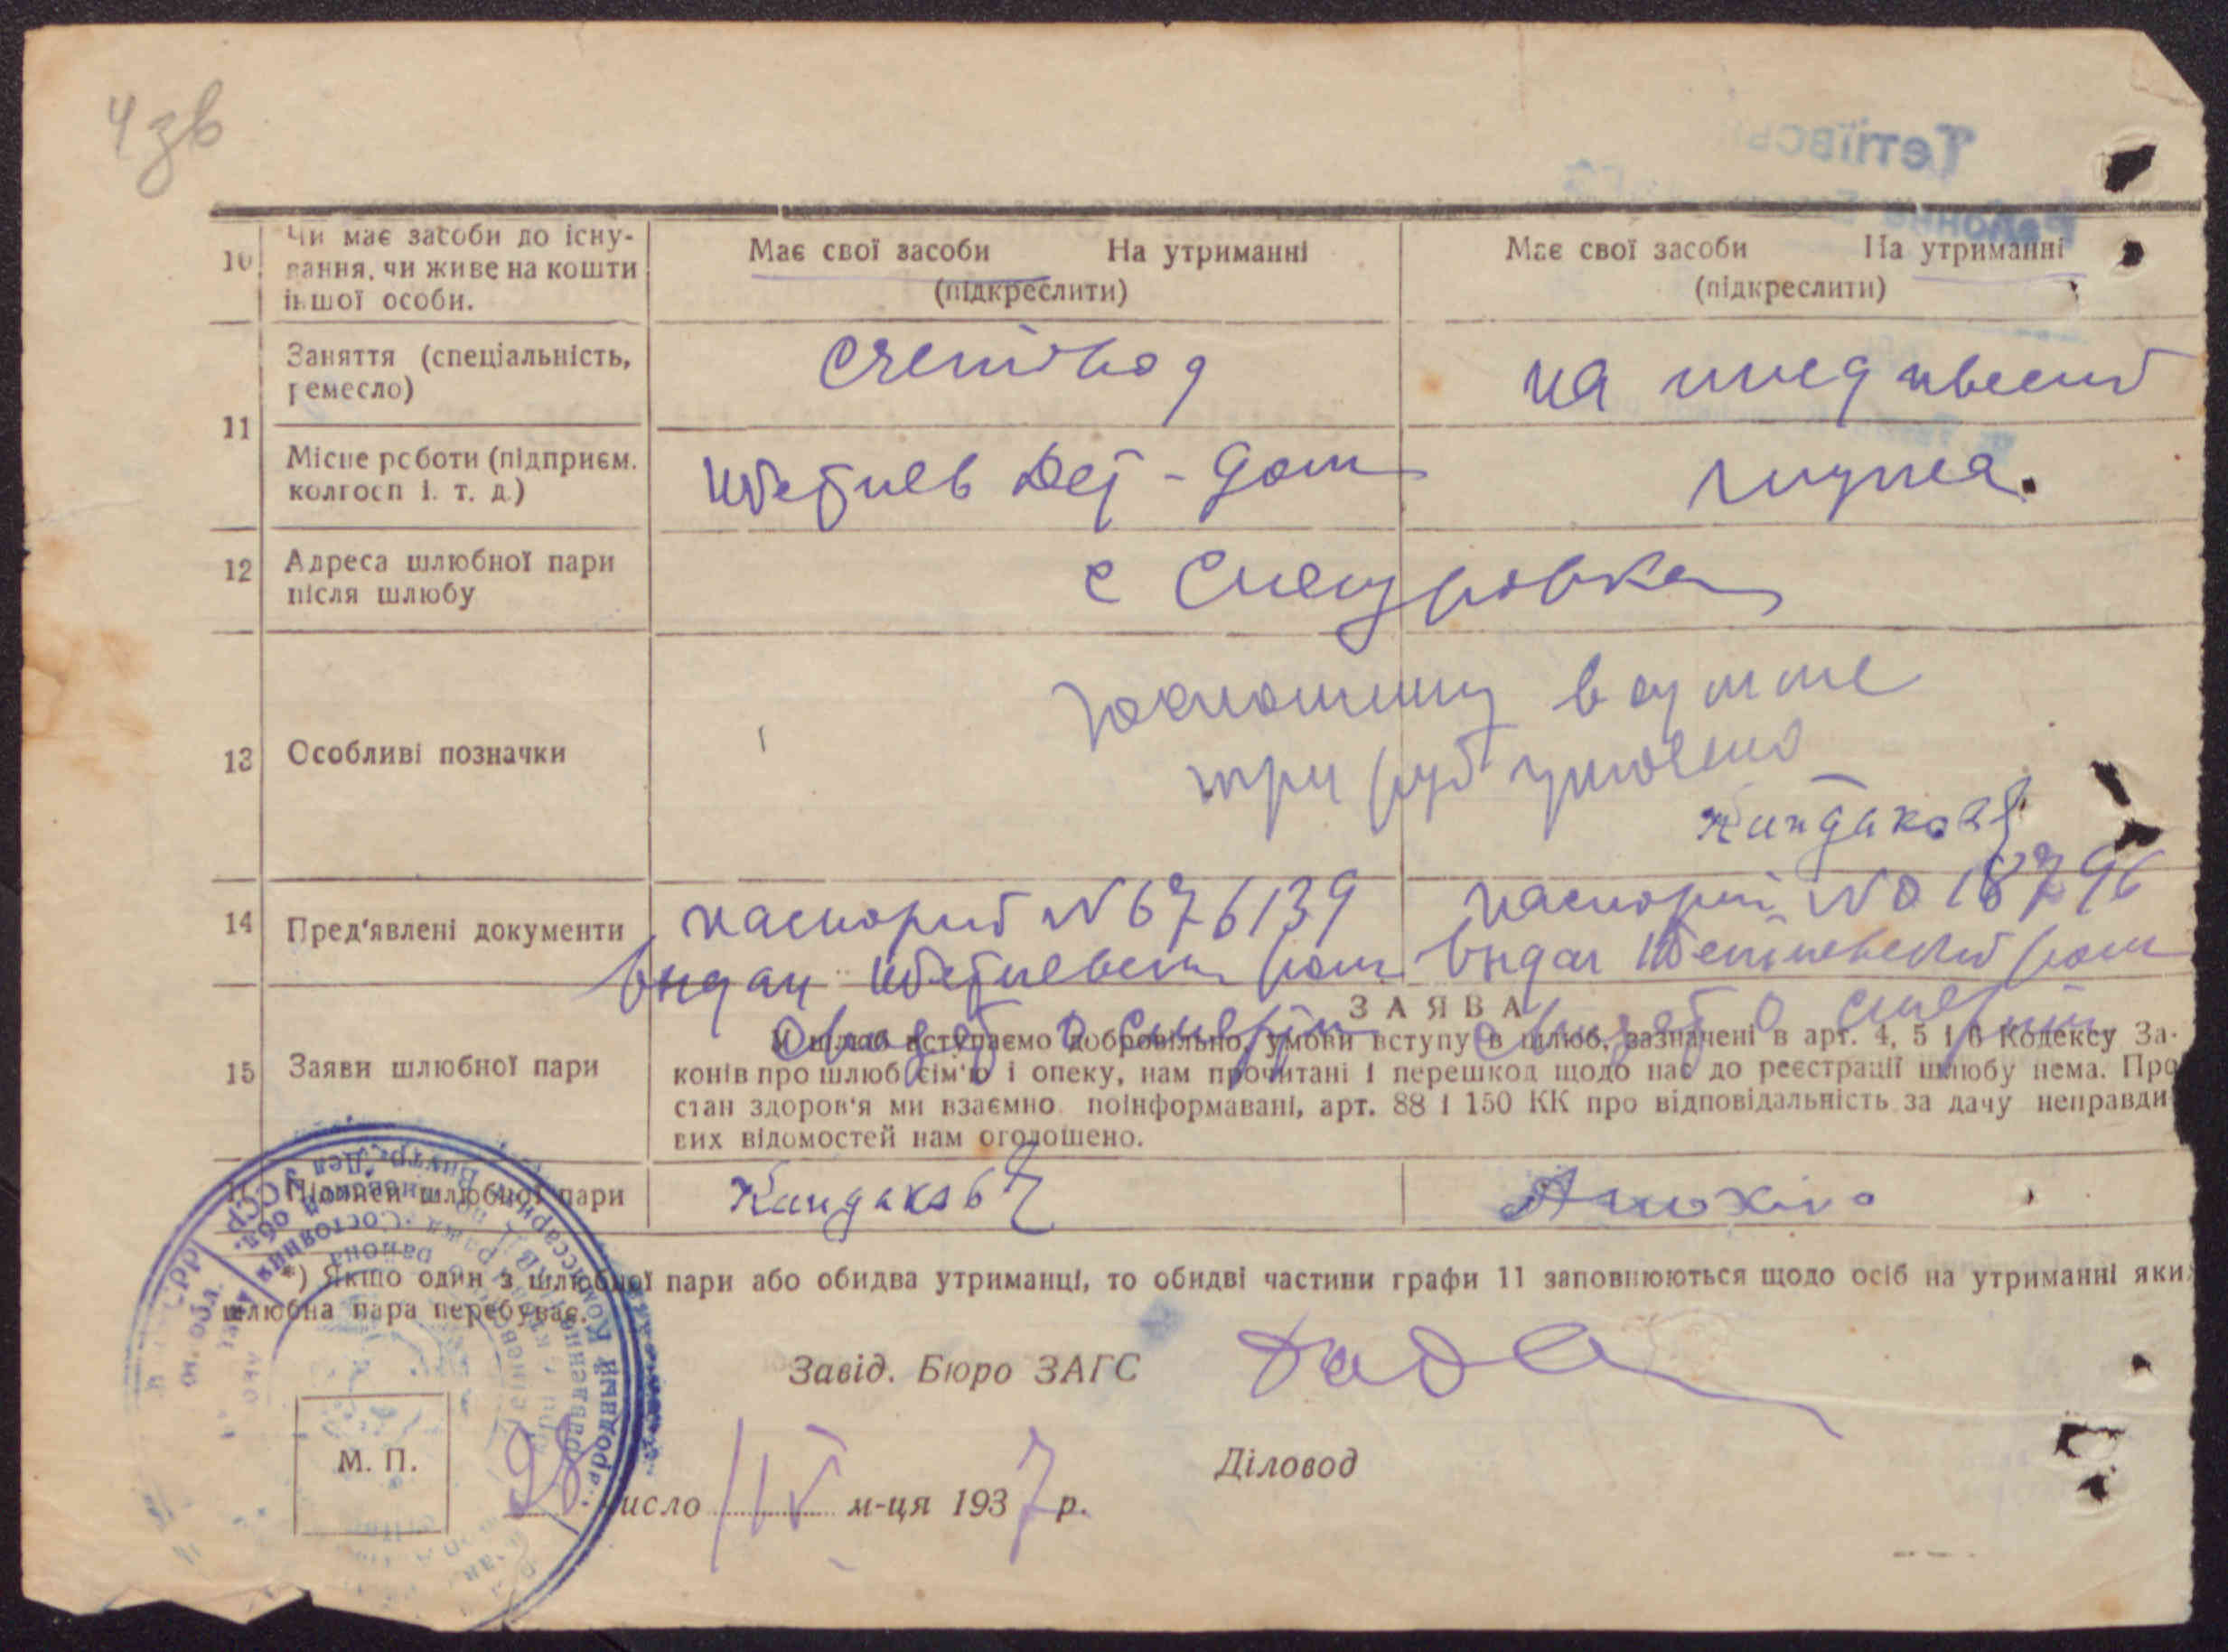 4 зв
10 Чи має засоби до існу-
вання, чи живе на кошти
іншої особи.
Має свої засоби На утриманні
(підкреслити)
Має свої засоби На утриманні
(підкреслити)
11
Заняття (спеціальність,
ремесло)
счетовод
на иждивении
Місце роботи (підприєм.
колгосп і. т. д.)
Тетиев Дет-дом
мужа.
12 Адреса шлюбної пари
після шлюбу
с Снегуровка
13 Особливі позначки
госпошлину в сумме
три руб уплочено
14 Пред'явлені документи
паспорт № 676139
выдан Тетиевским ром
паспорт №
выдан Тетиевский ром
15 Заяви шлюбної пари
ЗАЯВА
У шлюб вступаємо добровільно, умови вступу в шлюб, зазначені в арт. 4, 5 і 6 Кодексу За-
конів про шлюб сім'ю і опеку, нам прочитані і перешкод щодо нас до реєстрації шлюбу нема. Про
стан здоров'я ми взаємно поінформавані, арт. 88 і 150 КК про відповідальність за дачу неправди
вих відомостей нам оголошено.
Підписи шлюбної пари
*) Якщо один з шлюбної пари або обидва утриманці, то обидві частини графи 11 заповнюються щодо осіб на утриманні яки
шлюбна пара перебуває.
Завід. Бюро ЗАГС
Діловод
М. П.
28 число IV м-ця 1937 р.